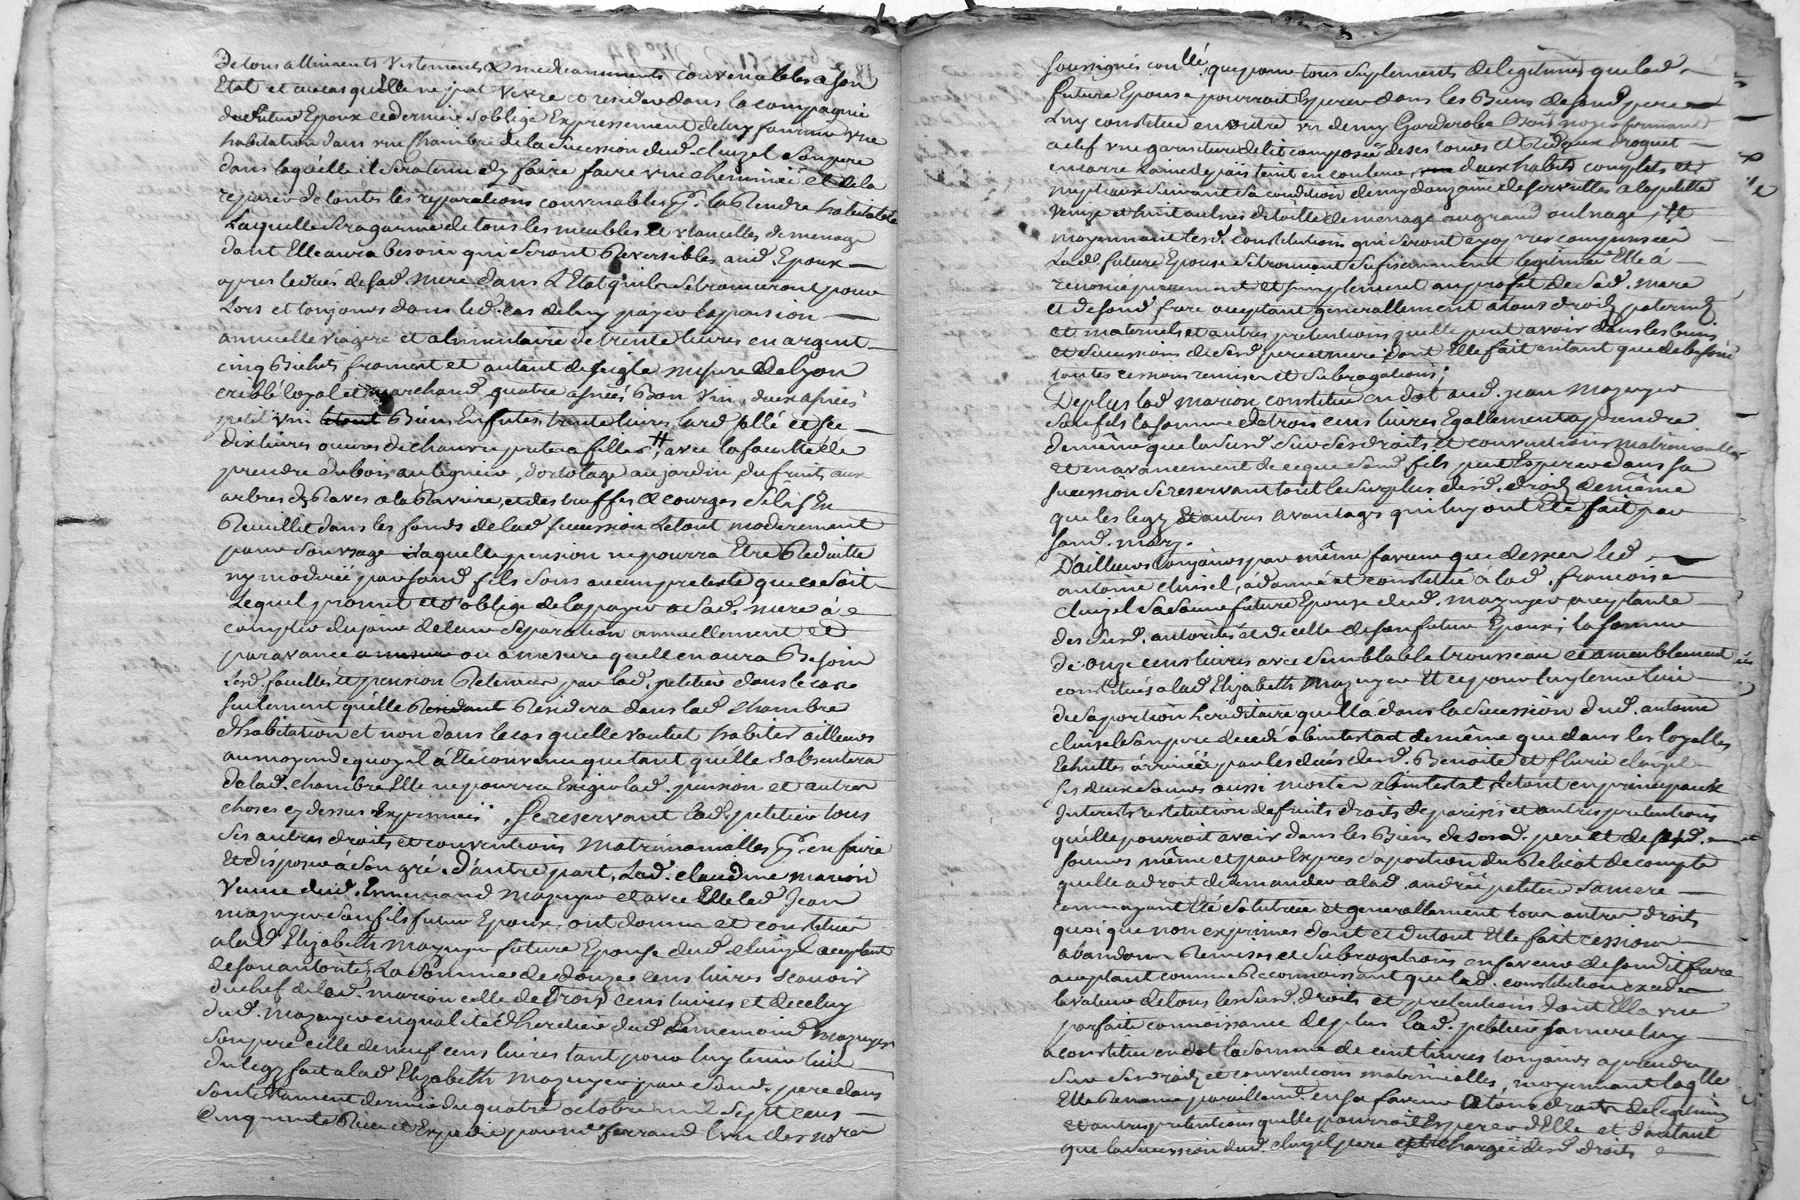 de tous alliments vestements & medicaments convenables a son
Etat et au cas qu'elle ne put vivre et resider dans la compagnie
dud futur Epoux ce dernier s'oblige Expressement de luy fournir une
habitation dans une chambre de la sucession dud. cluizel son pere
dans laquelle il sera tenu d'y faire faire une cheminéé et de la
reparer de toutes les reparations convenables pr. la Rendre habitable
Laquelle sera garnie de tous les meubles et utancilles de menage
dont Elle aura besoin qui seront Reversibles aud. Epoux
apres le decés de sad. mere dans L'Etat qu'ils se trouveront pour
Lors et toujours dans led. cas de luy payer la pension
annuelle viagere et alimentaire de trente livres en argent
cinq Bichets froment et autant de seigle mesure de lyon
criblé loyal et marchand, quatre asnéés Bon vin, deux asnéés
petit vin Bien Enfutés, trente livres lard sallé et sec
dix livres oeuvres de chanvre prete a filler # avec la faculté de
prendre du bois au legnier, d'ortolage au jardin, du fruits aux
arbres des Raves a la Raviere, et des truffes & courges s'il s'En
Recuillit dans les fonds de lad sucession Le tout moderement
pour son usage Laquelle pension ne pourra Etre Reduitte
ny moderéé par sond. fils sous aucun pretexte que ce soit
Lequel promet et s'oblige de la payer a sad. mere à
compter du jour de leur separation annuellement et
par avance ou a mesure quelle en aura Besoin
Lesd. facultés et pension Retenues par lad. petitier dans le cas
seulement qu'elle Residera dans lad chambre
d'habitation et non dans le cas quelle voulut habiter ailleurs
au moyen de quoy il a été convenu que tant qu'elle s'absentera
de lad. chambre Elle ne pourra Exiger lad. pension et autres
choses cy dessus Expriméés, se reservant lad. petitier tous
ses autres droits et conventions matrimonialles pr. en faire
Et disposer a son gré. D'autre part, Lad. claudine marion
veuve dud. Ennemond mazuyer et avec Elle led Jean
mazuyer son fils futur Epoux, ont donné et constitué
a lad. Elizabeth mazuyer future Epouse dud. cluizel acceptant
de son autorité, La somme de douze cens livres scavoir
du chef de lad. marion celle de trois cens livres et de celuy
dud. mazuyer en qualité d'heritier dud Ennemond mazuyer
son pere celle de neuf cens livres tant pour luy tenir lieu
du legz fait a lad Elizabeth mazuyer par sond. pere dans
son testament dernier du quatre octobre mil sept cens
Cinquante Receu et Expedié par me ferrand l'un des nores
soussignés conllé, que pour tous suplements de legitimes que lad.
future Epouse pourroit Esperer dans les Biens de sond pere
Luy constitue en outre un demy Garderobe Bois noyer fermant
a clef une garniture de lit composéé de ses tours et Rideaux droguet
en sarre laine depais teint en couleur, deux habits complets et
neptiaux suivant sa condition demy douzaine de serviettes a la petitte
venize et huit aulnes de toille de menage au grand aulnage, Et
moyennant lesd. constitutions
La de future Epouse se trouvant sufisamment legitiméé Elle a
renoncé purement et simplement au profit de sad. mere
et de sond frere acceptant generallement a tous droits paternels
et maternels et autres pretentions quelle peut avoir dans les biens
et sucessions de sesd. pere et mere dont Elle fait en tant que de besoin
toutes cessions remises et subrogations;
De plus lad marion constitue en dot aud. jean mazuyer
son fils la somme de trois cens livres Egallement a prendre
de même que la susd. sur ses droits et conventions matrimonialles
et en avancement de ce que sond. fils peut Esperer dans sa
sucession se reservant tout le surplus desd. droits de même
que les legz Et autres avantages qui luy ont été fait par
sond. mary.
D'ailleurs toujours par même faveur que dessus led
antoine cluizel, a donné et constitué à lad. francoise
cluizel sa soeur future Epouse dud. mazuyer acceptante
des susd. autorités et de celle de son futur Epoux; la somme
de onze cens livres avec semblable trousseau et ameublement
constitués a lad Elizabeth mazuyer Et ce pour luy tenir lieu
de sa portion hereditaire quelle a dans la sucession dud. antoine
cluizel son pere decedé abintestat de même que dans les loyalles
Echuttes arrivéés par les decés desd. Benoite et fleurie cluizel
ses deux soeurs aussi mortes abintestat Le tout en principaux
Interets restitution de fruits droits de parisis et autres pretentions
qu'elle pourroit avoir dans les Biens de sesd. pere et de sesd.
soeurs même et par Expres sa portion du Relicat de compte
quelle a droit de demander a lad. andréé petitier sa mere
comme ayant Eté sa tutrice et generallement tous autres droits
quoi que non exprimés dont et du tout Elle fait cession
abandon Remises et subrogations en faveur de sondit frere
acceptant comme Reconnoissant que lad. constitution excede
la valeur de tous les susd. droits et pretentions dont Elle a une
parfaite connoissance de plus lad. petitier sa mere luy
a constitué en dot la somme de cent livres toujours a prendre
sur ses droits et conventions matrimonialles, moyennant laqlle
Elle Renonce pareillemt. en sa faveur a tous droits de legitimes
et autres pretentions quelle pourroit Esperer d'Elle et d'autant
que la sucession dud. cluizel pere est chargéé desd. droits